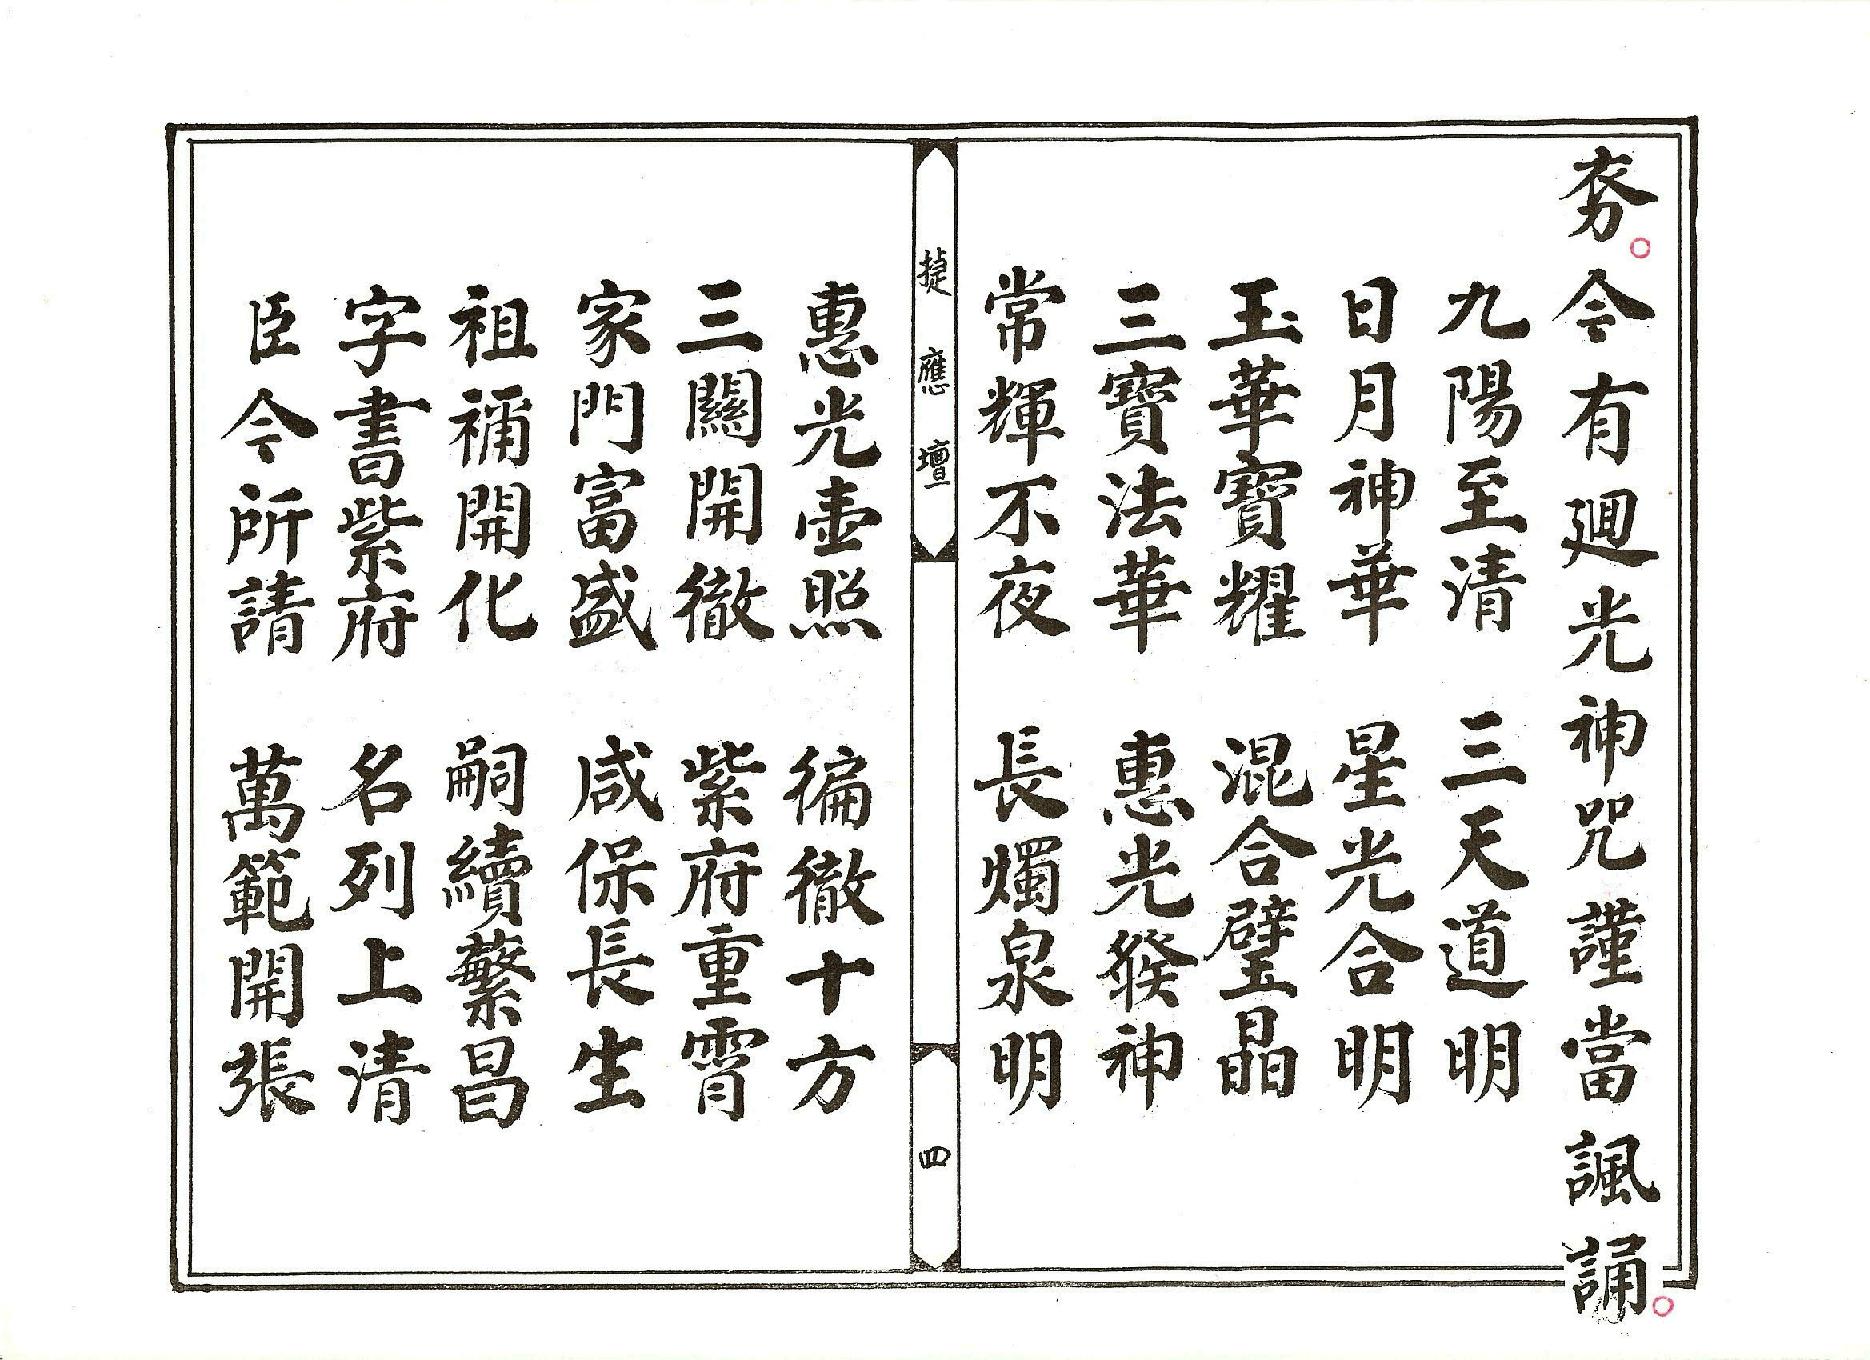 夯。今有廻光神咒謹當諷誦。
九陽至清　三天道明
日月神華　星光合明
玉華寶耀　混合璧晶
三寶法華　惠光神
常輝不夜　長燭泉明
捷應壇　四
惠光壺照　徧徹十方
三關開徹　紫府重霄
家門富盛　咸保長生
祖補開化　嗣續繁昌
字書紫府　名列上清
臣今所請　萬範開張